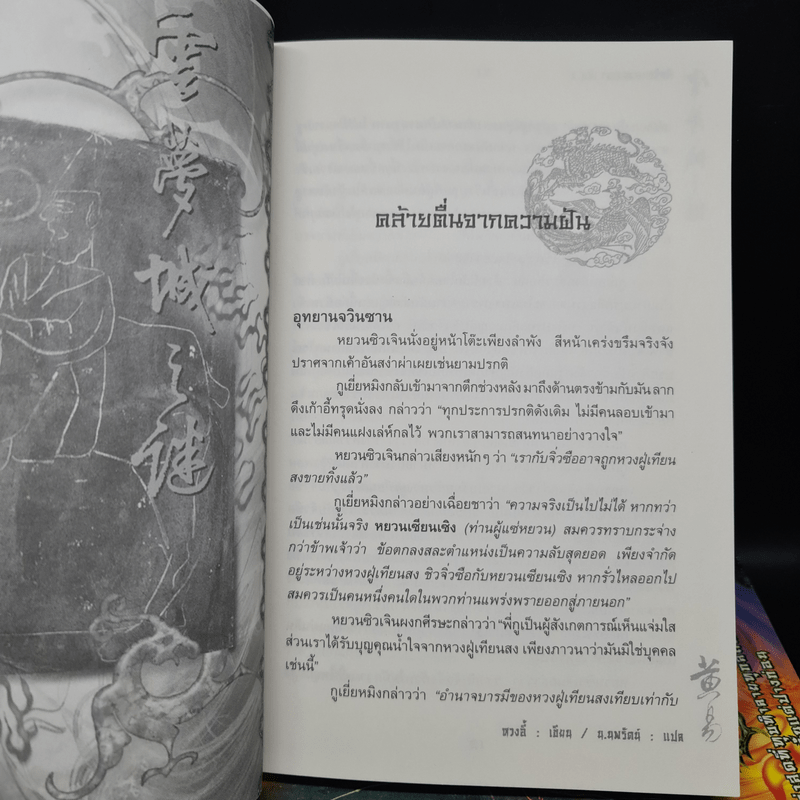 雲夢城之谜
คล้ายตื่นจากความฝัน
อุทยานจวินซาน
หยวนซิวเจินนั่งอยู่หน้าโต๊ะเพียงลำพัง สีหน้าเคร่งขรึมจริงจัง
ปราศจากเค้าอันสง่าผ่าเผยเช่นยามปรกติ
กูเยี่ยหมิงกลับเข้ามาจากตึกช่วงหลัง มาถึงด้านตรงข้ามกับมัน ลาก
ดึงเก้าอี้ทรุดนั่งลง กล่าวว่า “ทุกประการปรกติดังเดิม ไม่มีคนลอบเข้ามา
และไม่มีคนแฝงเล่ห์กลไว้ พวกเราสามารถสนทนาอย่างวางใจ”
หยวนซิวเจินกล่าวเสียงหนักๆ ว่า “เรากับจิ่วซืออาจถูกหวงฝู่เทียน
สงขายทิ้งแล้ว”
กูเยี่ยหมิงกล่าวอย่างเฉื่อยชาว่า “ความจริงเป็นไปไม่ได้ หากทว่า
เป็นเช่นนั้นจริง หยวนเซียนเซิง (ท่านผู้แซ่หยวน) สมควรทราบกระจ่าง
กว่าข้าพเจ้าว่า ข้อตกลงสละตำแหน่งเป็นความลับสุดยอด เพียงจำกัด
อยู่ระหว่างหวงฝู่เทียนสง ชิวจิ่วซือกับหยวนเซียนเซิง หากรั่วไหลออกไป
สมควรเป็นคนหนึ่งคนใดในพวกท่านแพร่งพรายออกสู่ภายนอก”
หยวนซิวเจินผงกศีรษะกล่าวว่า “พี่กูเป็นผู้สังเกตการณ์เห็นแจ่มใส
ส่วนเราได้รับบุญคุณน้ำใจจากหวงฝู่เทียนสง เพียงภาวนาว่ามันมิใช่บุคคล
เช่นนี้”
กูเยี่ยหมิงกล่าวว่า “อำนาจบารมีของหวงฝู่เทียนสงเทียบเท่ากับ
黄易
หวงอี้ : เขียน / น.นพรัตน์ : แปล